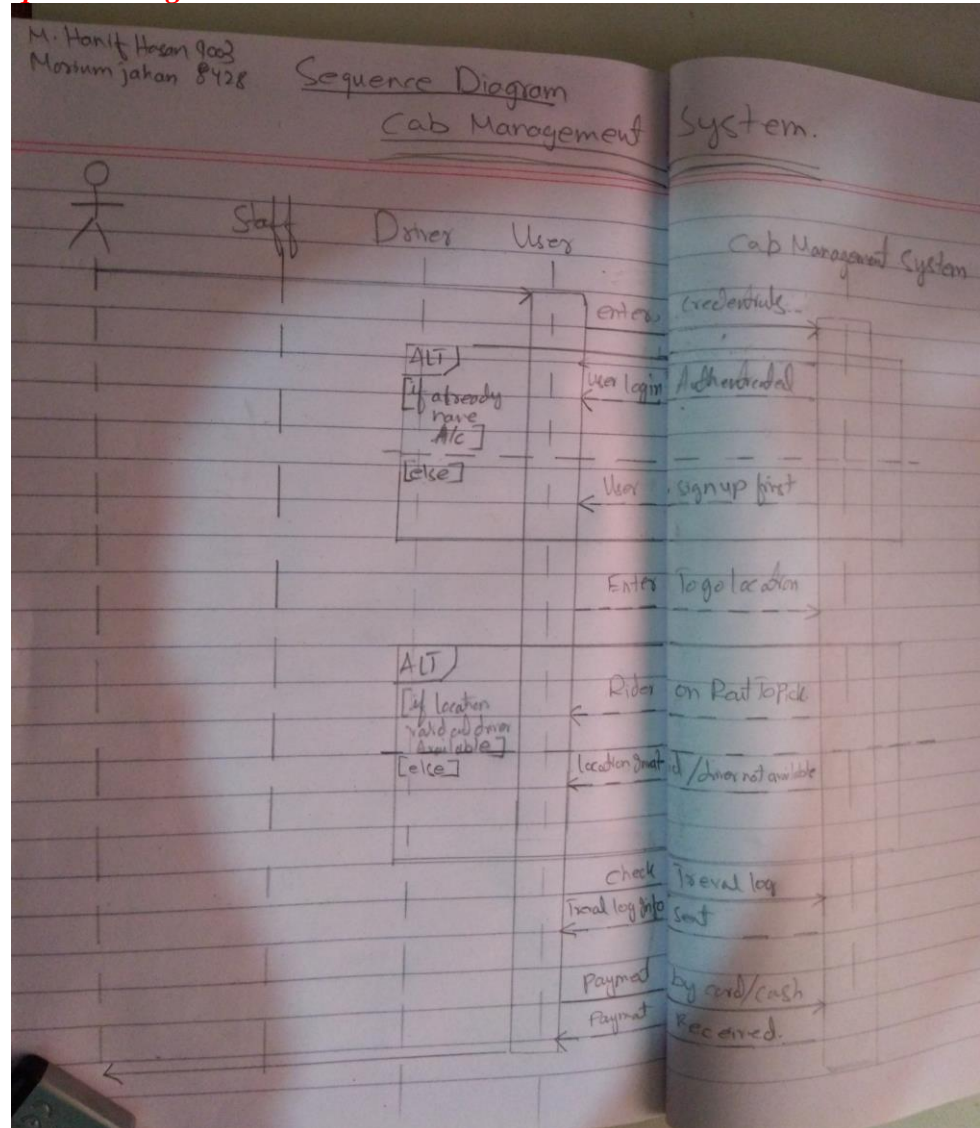 M. Hanif Hasan 9003
Morium jahan 8428
Sequence Diagram
Cab Management System.
Staff Driver User Cab Management System
enter credentials
ALT
User login Authenticated
[if already
have
A/c]
[else]
User signup first
Enter To go location
ALT
[if location
valid driver
Available]
Rider on Rout To Pick
[else]
location Invalid / driver not available
Check Treval log
Treval log Info sent
Payment by card/cash
Payment Received.